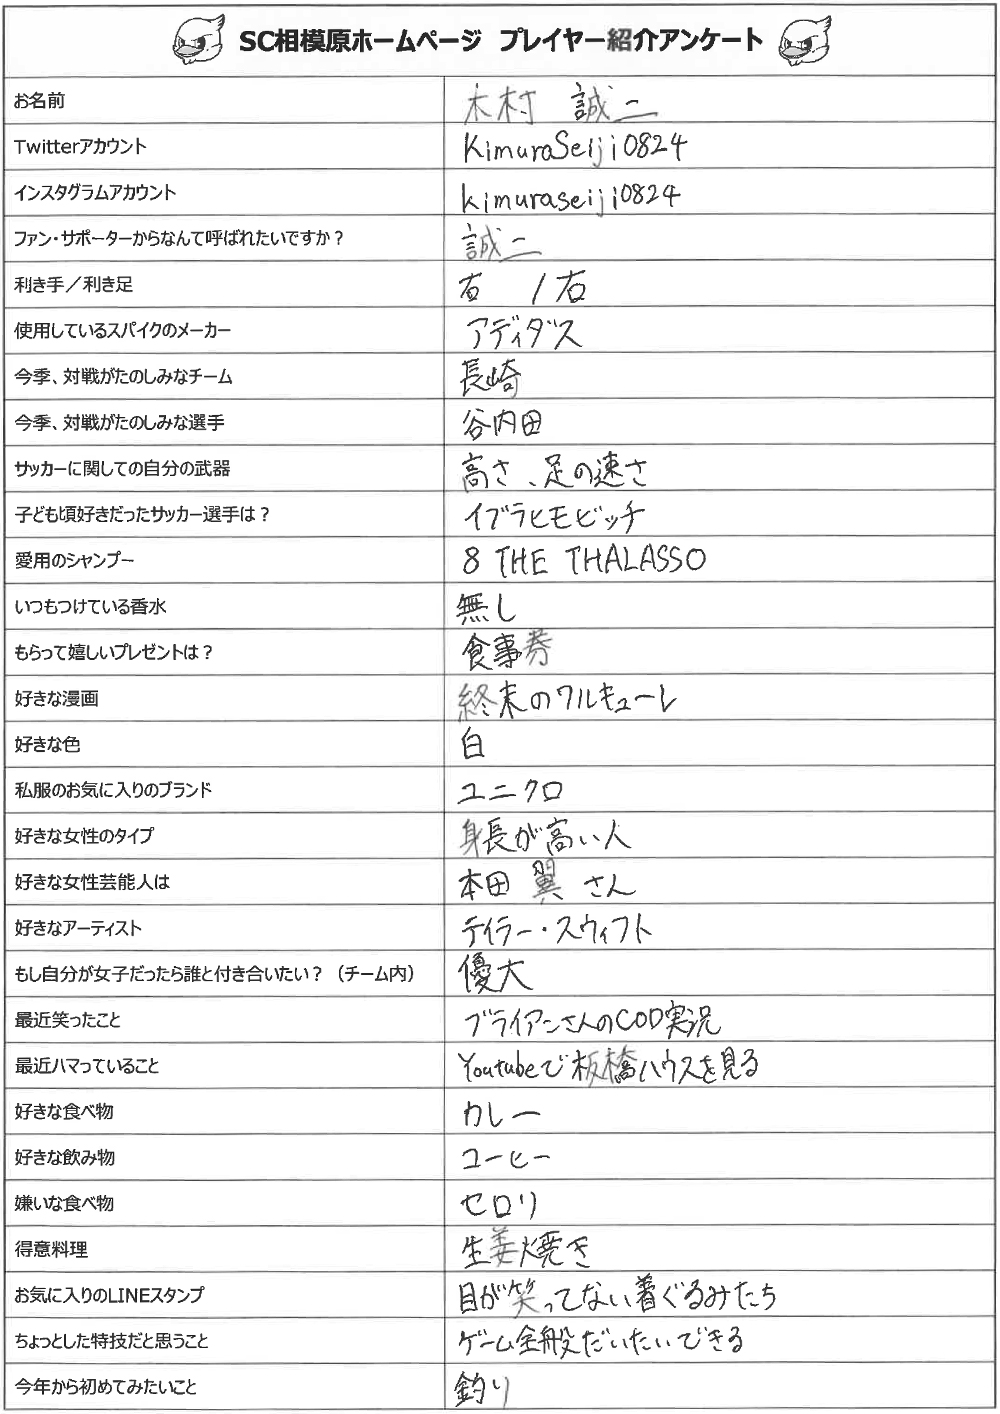 SC相模原ホームページ プレイヤー紹介アンケート
お名前 木村 誠二
Twitterアカウント KimuraSeiji0824
インスタグラムアカウント kimuraseiji0824
ファン・サポーターからなんて呼ばれたいですか？ 誠二
利き手／利き足 右 / 右
使用しているスパイクのメーカー アディダス
今季、対戦がたのしみなチーム 長崎
今季、対戦がたのしみな選手 谷内田
サッカーに関しての自分の武器 高さ、足の速さ
子ども頃好きだったサッカー選手は？ イブラヒモビッチ
愛用のシャンプー 8 THE THALASSO
いつもつけている香水 無し
もらって嬉しいプレゼントは？ 食事券
好きな漫画 終末のワルキューレ
好きな色 白
私服のお気に入りのブランド ユニクロ
好きな女性のタイプ 身長が高い人
好きな女性芸能人は 本田 翼 さん
好きなアーティスト テイラー・スウィフト
もし自分が女子だったら誰と付き合いたい？（チーム内） 優大
最近笑ったこと ブライアンさんのCOD実況
最近ハマっていること Youtubeで板橋ハウスを見る
好きな食べ物 カレー
好きな飲み物 コーヒー
嫌いな食べ物 セロリ
得意料理 生姜焼き
お気に入りのLINEスタンプ 目が笑ってない着ぐるみたち
ちょっとした特技だと思うこと ゲーム全般だいたいできる
今年から初めてみたいこと 釣り